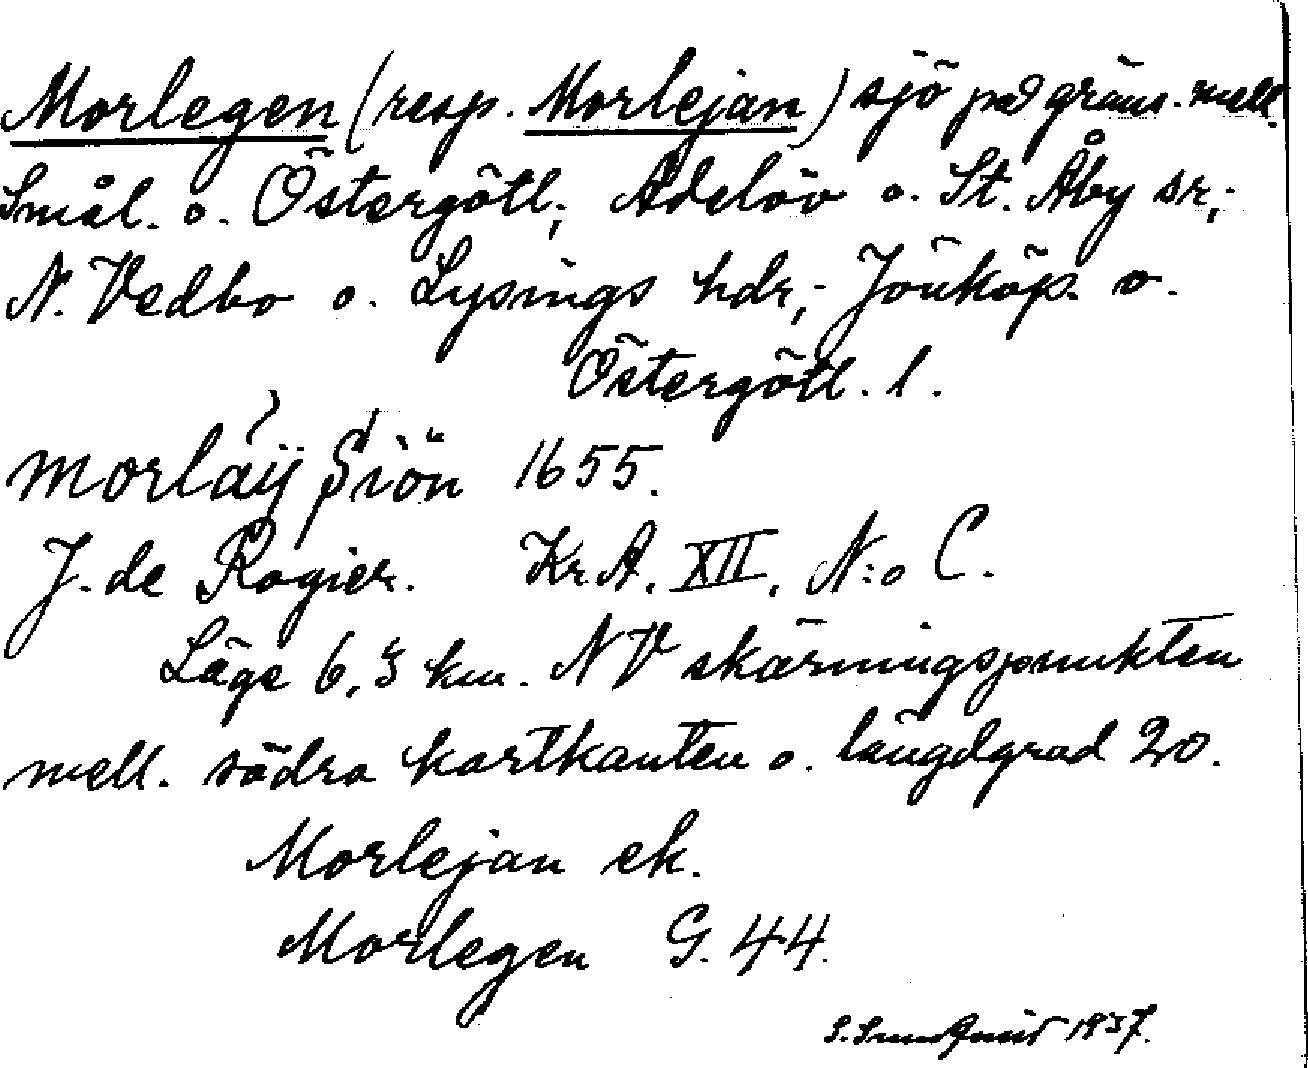 Morlegen (resp. Morlejan) sjö på gräns. mell.
Smål. o. Östergötl.; Adelöv o. St. Åby sr;
N. Vedbo o. Lysings hdr; Jönköp. o.
Östergötl. l.
Morlaÿ Siön 1655.
J. de Rogier. Kr. A. XII, N:o C.
Läge 6,3 km. NV skärningspunkten
mell. södra kartkanten o. längdgrad 20.
Morlejan ek.
Morlegen G. 44.
1937.